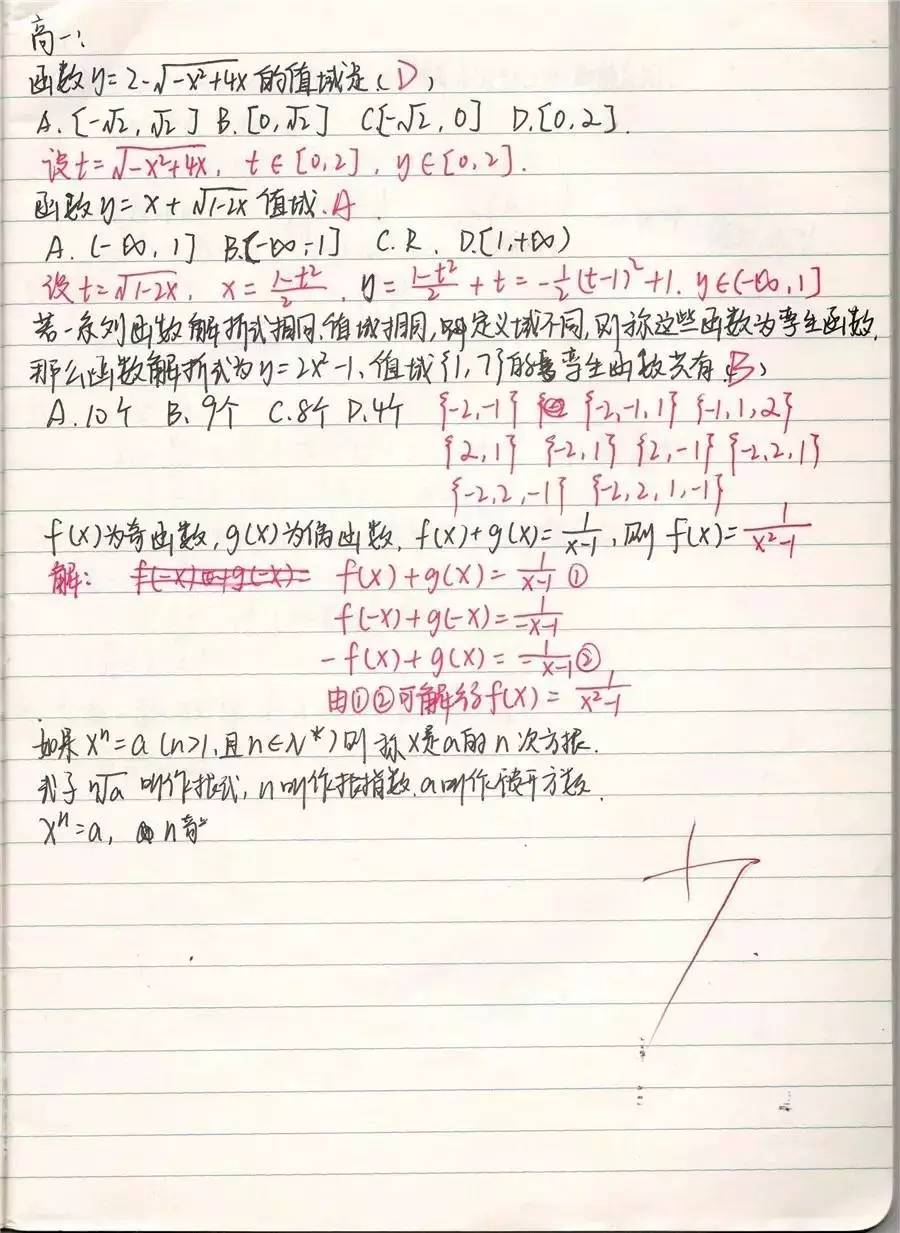 高一:
函数y=2-√-x²+4x的值域是(D)
A.[-√2,√2] B.[0,√2] C.[-√2,0] D.[0,2].
设t=√-x²+4x, t∈[0,2], y∈[0,2].
函数y=x+√1-2x值域.A.
A.(-∞,1] B.(-∞,-1] C.R. D.[1,+∞)
设t=√1-2x, x=(1-t²)/2, y=(1-t²)/2+t=-1/2(t-1)²+1. y∈(-∞,1]
若一系列函数解析式相同,值域相同,但定义域不同,则称这些函数为孪生函数,
那么函数解析式为y=2x²-1,值域{1,7}的孪生函数共有(B)
A.10个 B.9个 C.8个 D.4个 {-2,-1} {-2,-1,1} {-1,1,2}
{2,1} {-2,1} {2,-1} {-2,2,1}
{-2,2,-1} {-2,2,1,-1}
f(x)为奇函数,g(x)为偶函数,f(x)+g(x)=1/(x-1),则f(x)=1/(x²-1)
解: f(-x)+g(-x)= f(x)+g(x)=1/(x-1) ①
f(-x)+g(-x)=1/(-x-1)
-f(x)+g(x)=1/(-x-1) ②
由①②可解得f(x)=1/(x²-1)
如果xⁿ=a(n>1,且n∈N*)则称x是a的n次方根.
式子ⁿ√a叫作根式,n叫作根指数,a叫作被开方数.
xⁿ=a, n奇